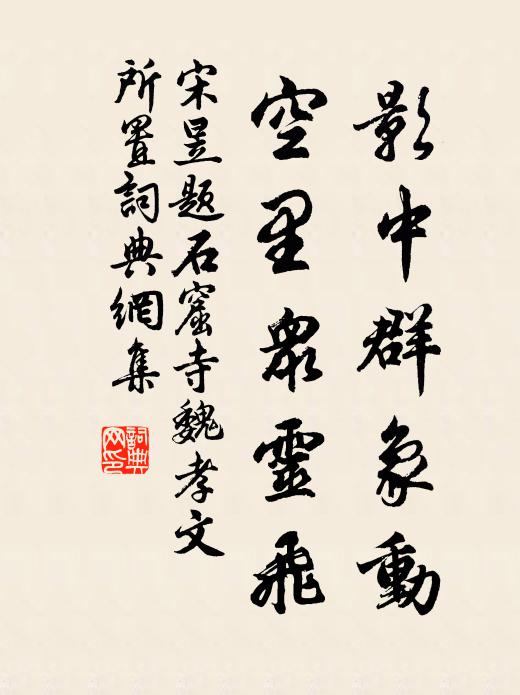 影中群象動
空里眾靈飛
宋昱題石窟寺魏孝文
所置詞典網集
詞典網印